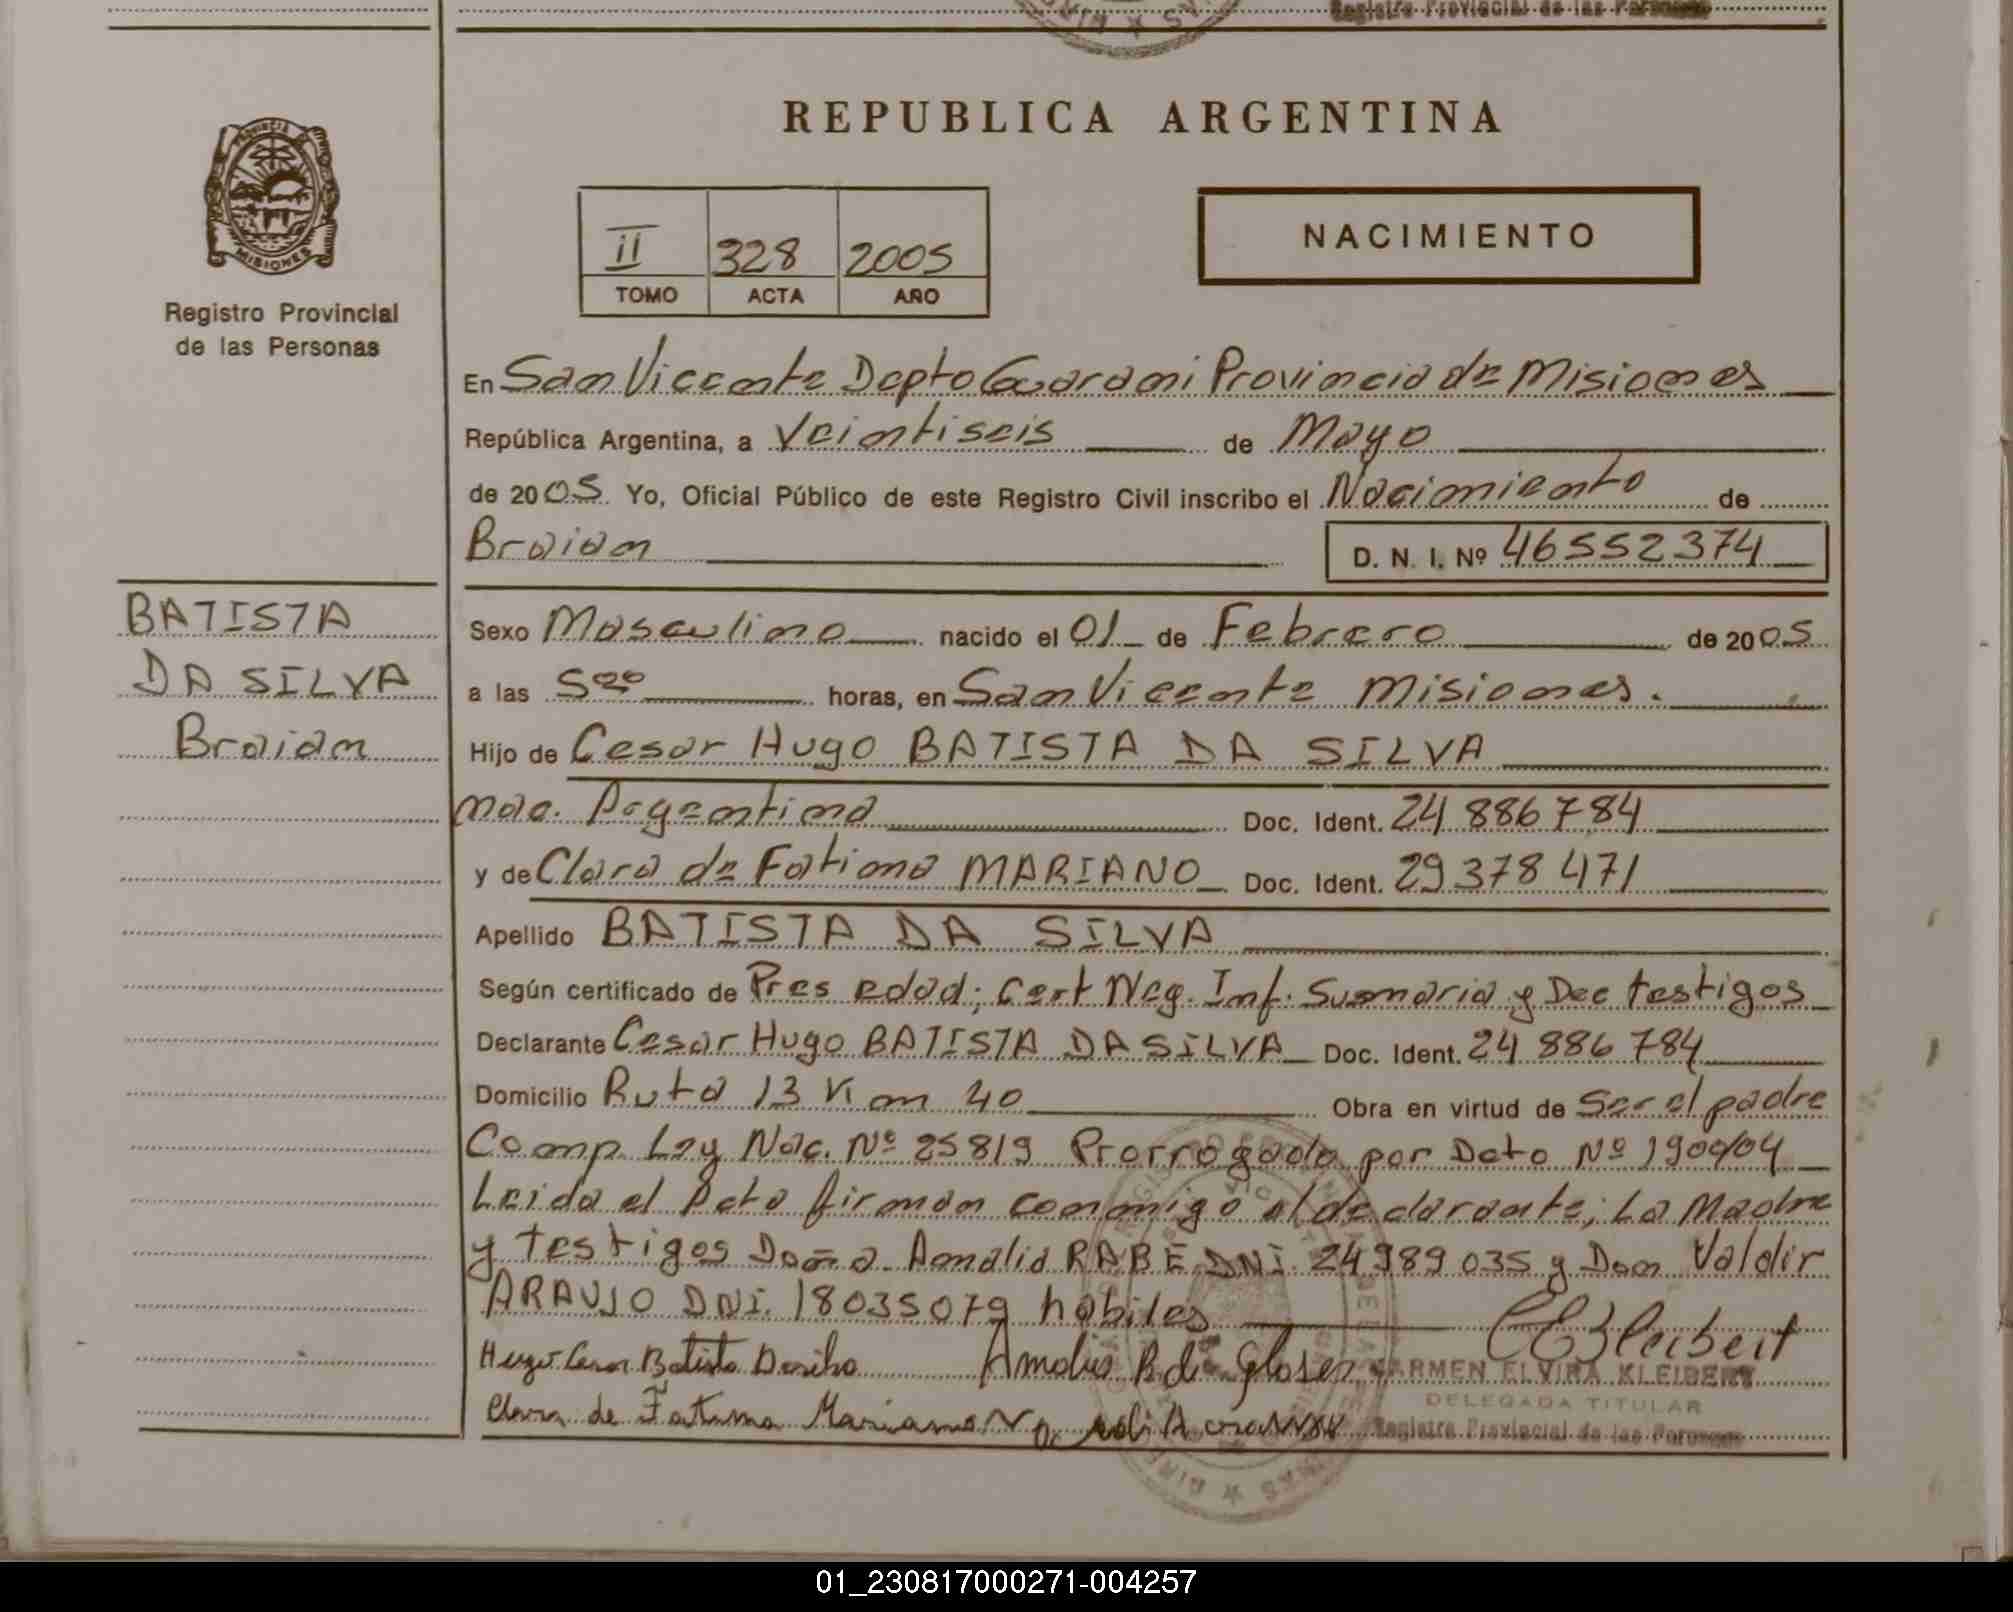 Registro Provincial de las Personas
REPUBLICA ARGENTINA
PROVINCIA
MISIONES
Registro Provincial
de las Personas
II 328 2005
TOMO ACTA AÑO
NACIMIENTO
En San Vicente Depto Guarani Provincia de Misiones
República Argentina, a Veintiseis de Mayo
de 2005 Yo, Oficial Público de este Registro Civil inscribo el Nacimiento de
Braian D. N. I. Nº 46552374
BATISTA
DA SILVA
Braian
Sexo Masculino nacido el 01 de Febrero de 2005
a las 5ºº horas, en San Vicente Misiones.
Hijo de Cesar Hugo BATISTA DA SILVA
nac. Argentina Doc. Ident. 24 886 784
y de Clara de Fatima MARIANO Doc. Ident. 29 378 471
Apellido BATISTA DA SILVA
Según certificado de Pres edad; Cert Neg. Inf. Sumaria y Dec testigos
Declarante Cesar Hugo BATISTA DA SILVA Doc. Ident. 24 886 784
Domicilio Ruta 13 Km 40 Obra en virtud de Ser el padre
Comp. Ley Nac. Nº 25819 Prorrogada por Dcto Nº 1900/04
Leida el Acta firman conmigo el declarante; La Madre
y testigos Doña Amalia RABE DNI 24989035 y Don Valdir
ARAUJO DNI. 18035079 habiles
Hugo Cesar Batista Amalia R. de Gloser CEKleibert
CARMEN ELVIRA KLEIBERT
DELEGADA TITULAR
Clara de Fatima Mariano
Registro Provincial de las Personas
01_230817000271-004257